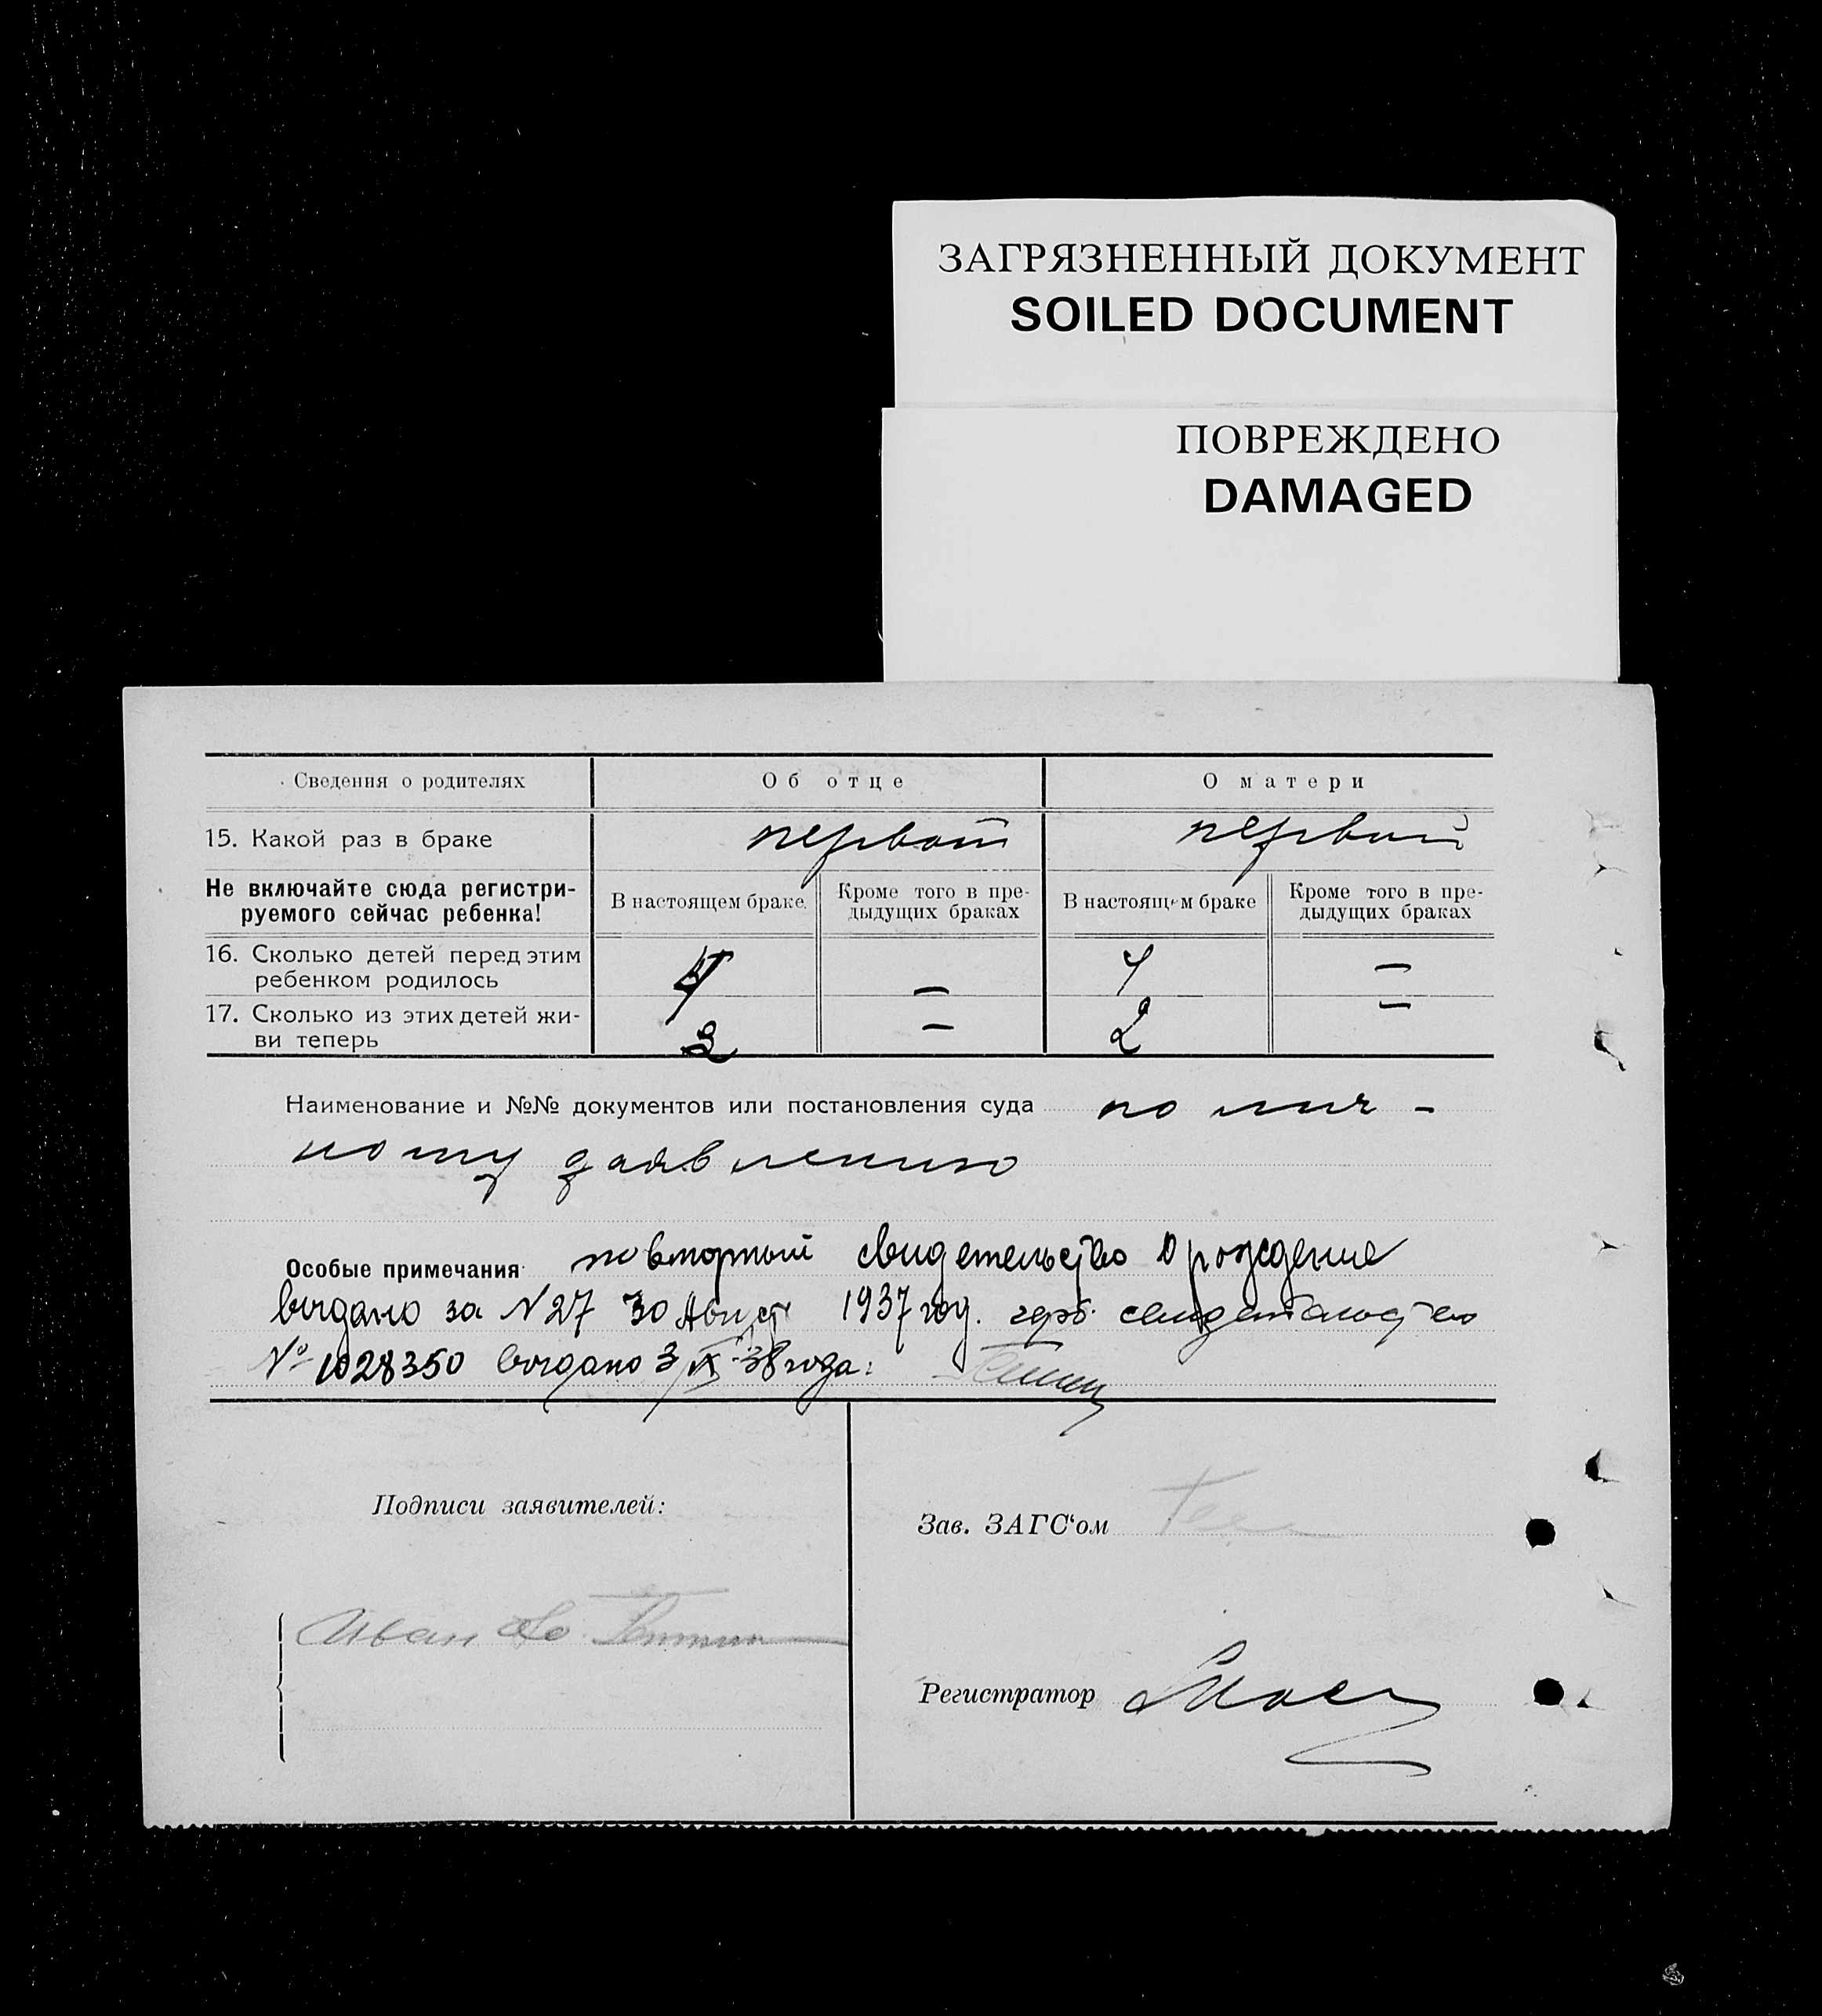 ЗАГРЯЗНЕННЫЙ ДОКУМЕНТ
SOILED DOCUMENT
ПОВРЕЖДЕНО
DAMAGED
Сведения о родителях Об отце О матери
15. Какой раз в браке первый первый
Не включайте сюда регистри-
руемого сейчас ребенка!
В настоящем браке
Кроме того в пре-
дыдущих браках
В настоящем браке
Кроме того в пре-
дыдущих браках
16. Сколько детей перед этим
ребенком родилось 4 — 4 —
17. Сколько из этих детей жи-
ви теперь 2 — 2 —
Наименование и №№ документов или постановления суда по лич-
ному заявлению
Особые примечания повторный свидетельство о рождение
выдано за N27 30 Август 1937 год. герб. свидетельство
№ 1028350 выдано 3/IX-38 года.
Подписи заявителей:
Иван
Зав. ЗАГС'ом
Регистратор